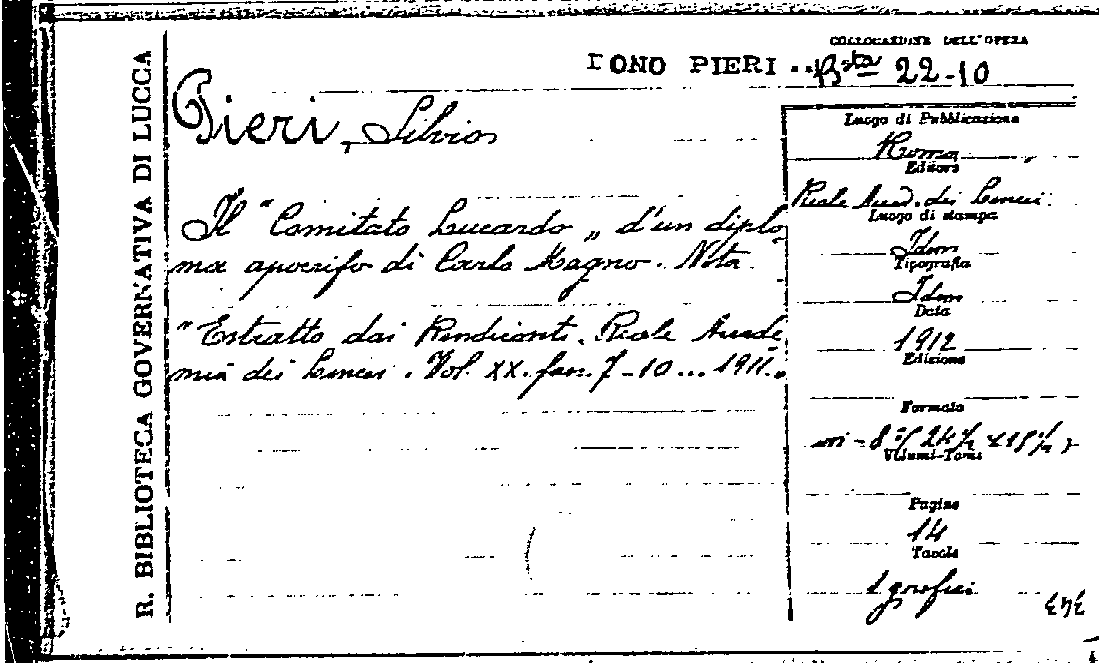 R. BIBLIOTECA GOVERNATIVA DI LUCCA
COLLOCAZIONE DELL'OPERA
DONO PIERI Bsta 22-10
Pieri, Silvio
Il "Comitato Lucardo" d'un diplo-
ma apocrifo di Carlo Magno. Nota.
"Estratto dai Rendiconti. Reale Accade-
mia dei Lincei. Vol. XX. fasc. 7-10... 1911."
Luogo di Pubblicazione
Roma
Editore
Reale Accad. dei Lincei.
Luogo di stampa
Idem
Tipografia
Idem
Data
1912
Edizione
Formato
in-8º (24½ x 15½)
Volumi-Tomi
Pagine
14
Tavole
1 grafici
343